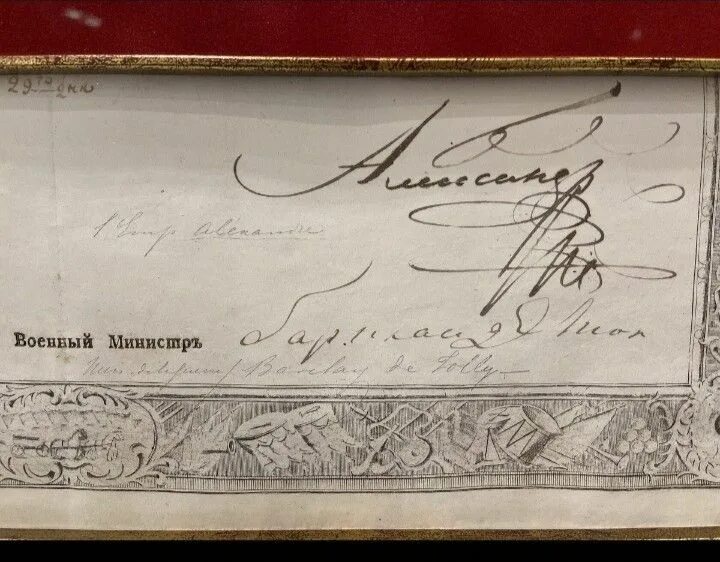 29го дня
Александръ
l'Emp alexandre
Военный Министръ Барклай д Толи
Barclay de Tolly